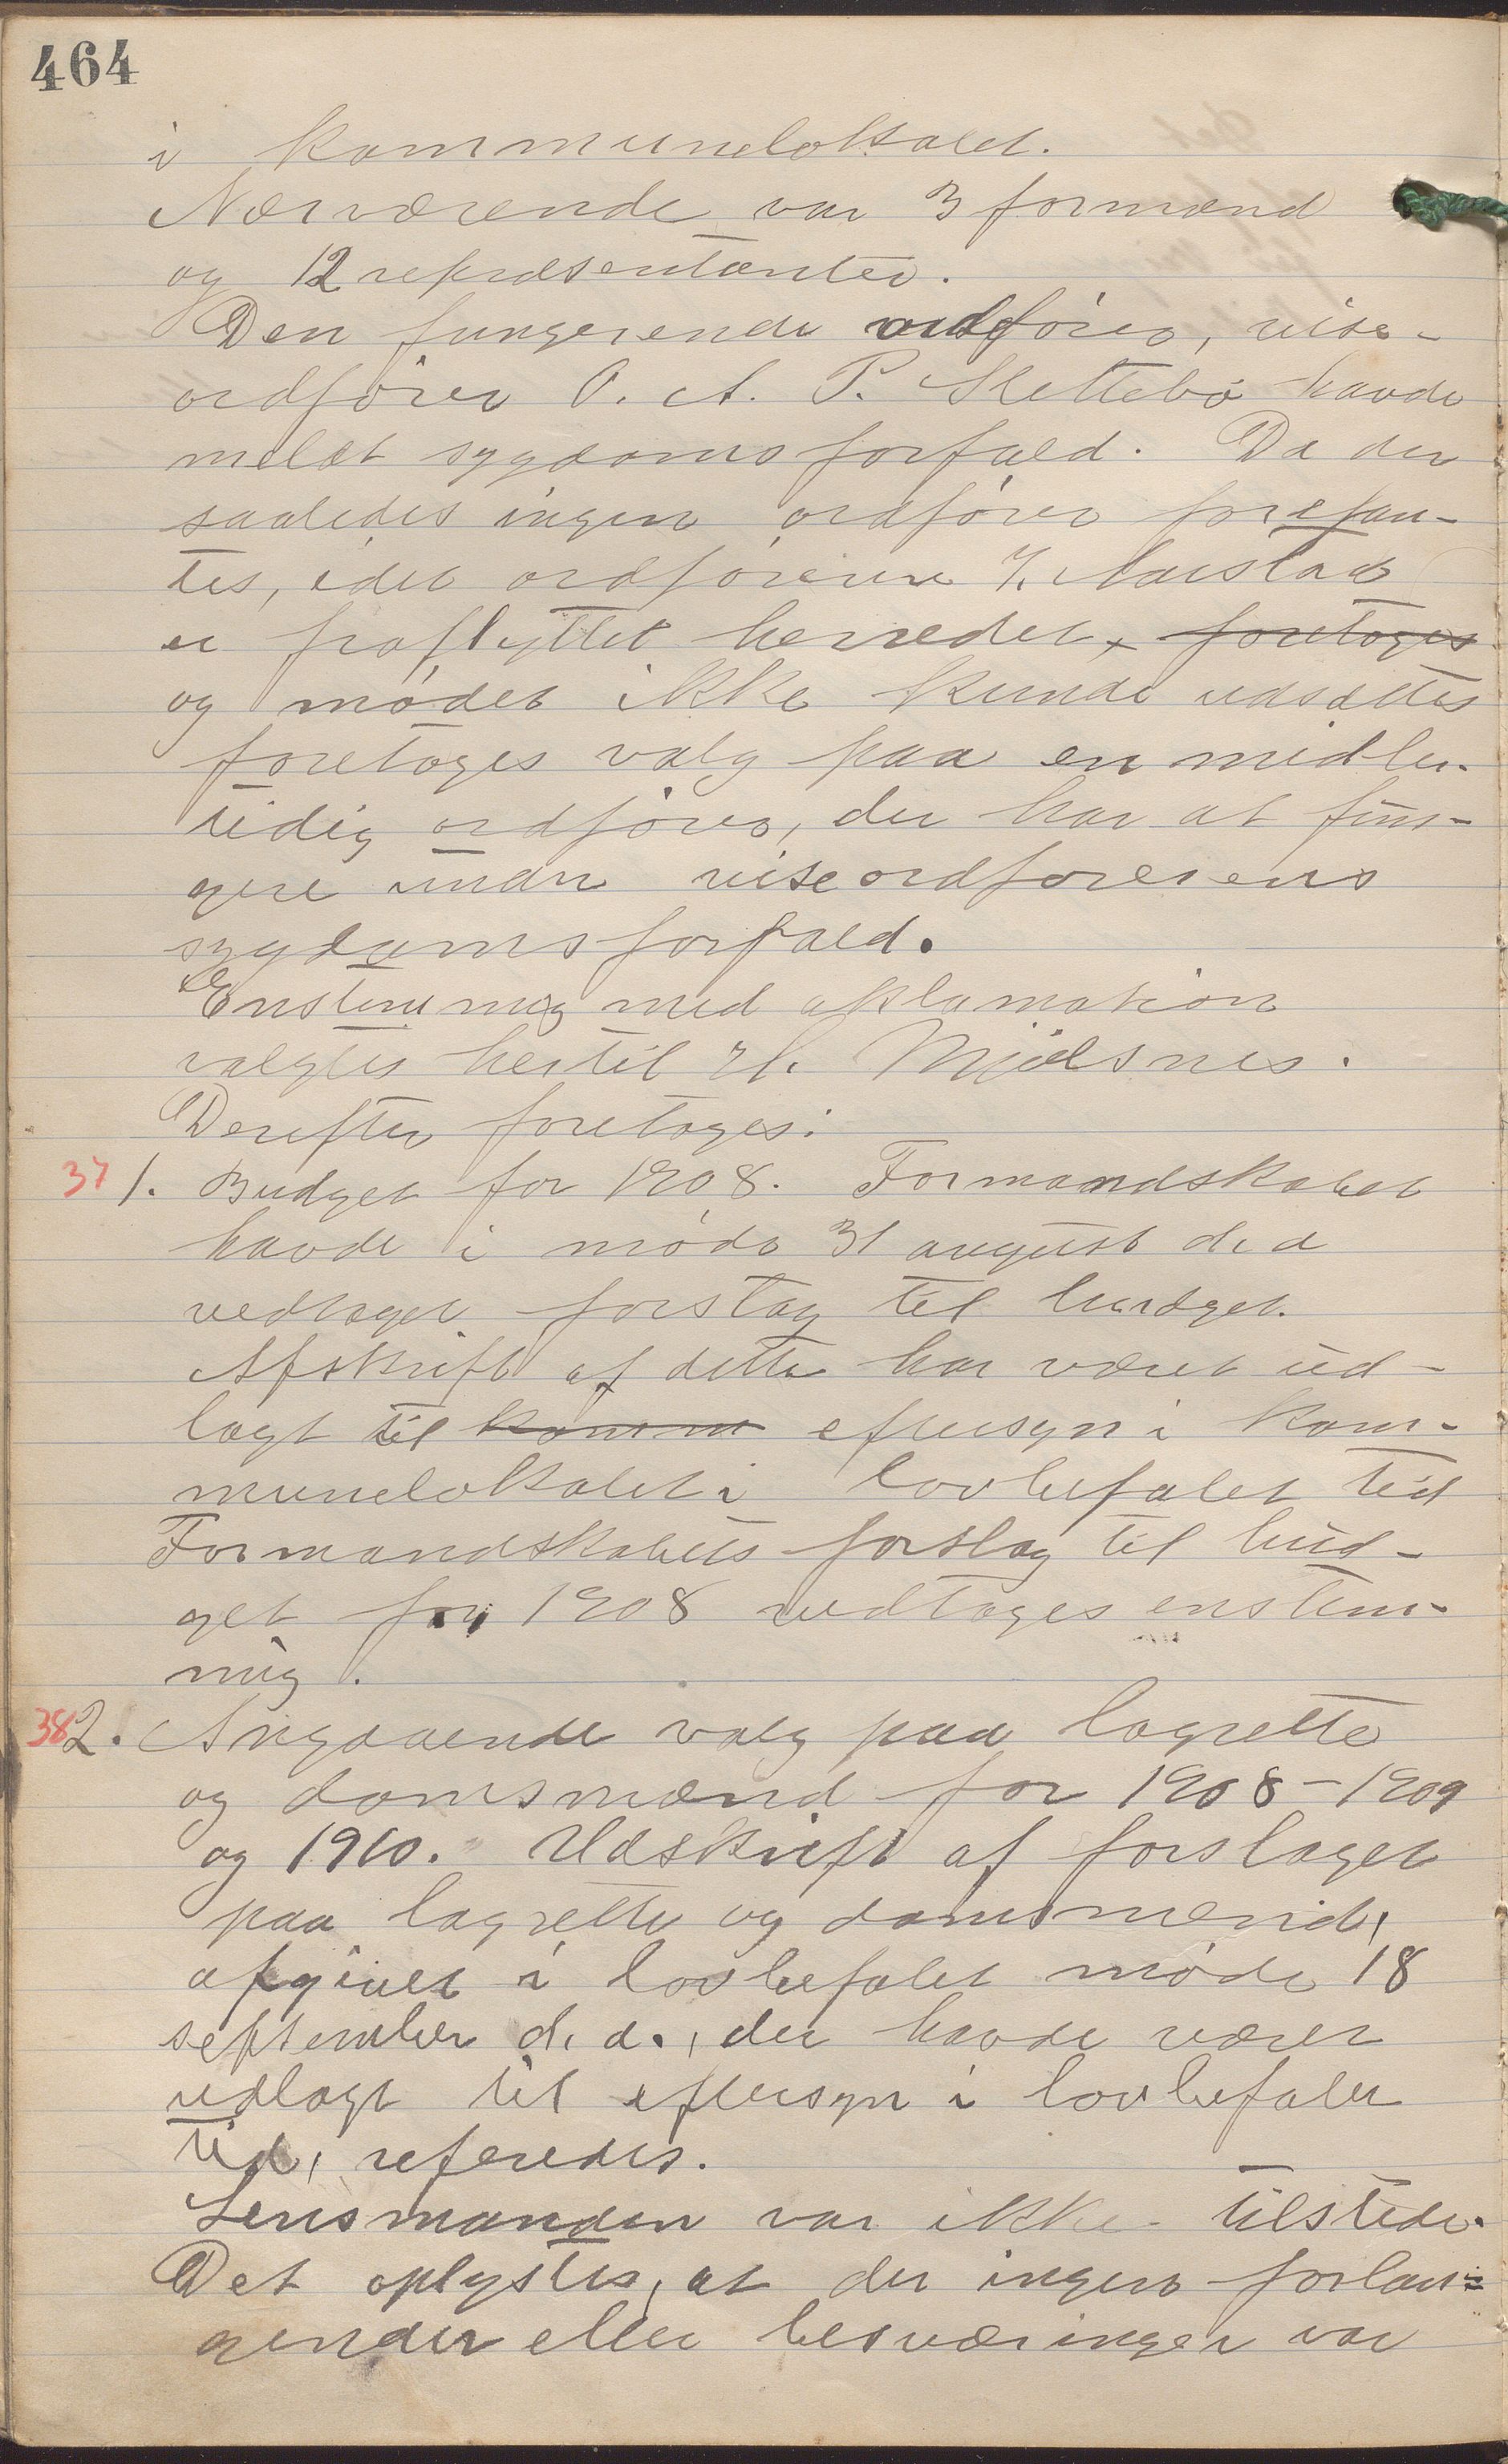 464
i kommunelokalet.
Nærværende var 3 formænd
og 12 repræsentanter.
Den fungerende ordfører, vise-
ordfører O. A. P. Slettebø havde
meldt sygdomsforfald. Da der
saaledes ingen ordfører forefan-
tes, idet ordføreren T. Aarstad
er fraflyttet herredet, foretoges
og mødet ikke kunde udsættes
foretoges valg paa en midler-
tidig ordfører, der har at fun-
gere under viseordførerens
sygdomsforfald.
Enstemmig med aklamation
valgtes hertil H. Mjølsnes.
Derefter foretoges:
37 1. Budget for 1908. Formandskabet
havde i møde 31 august d. a
vedtaget forslag til budget.
Afskrift af dette har været ud-
lagt til komm eftersyn i kom-
munelokalet i lovbefalet tid
Formandskabets forslag til bud-
get for 1908 vedtoges enstem-
mig.
38 2. Angaaende valg paa lagrette
og domsmænd for 1908-1909
og 1910. Udskrift af forslaget
paa lagrette og domsmænd,
afgivet i lovbefalet møde 18
september d. a., der havde været
udlagt til eftersyn i lovbefalet
tid, referedes.
Lensmanden var ikke tilstede.
Det oplystes, at der ingen forlan-
gender eller besværinger var